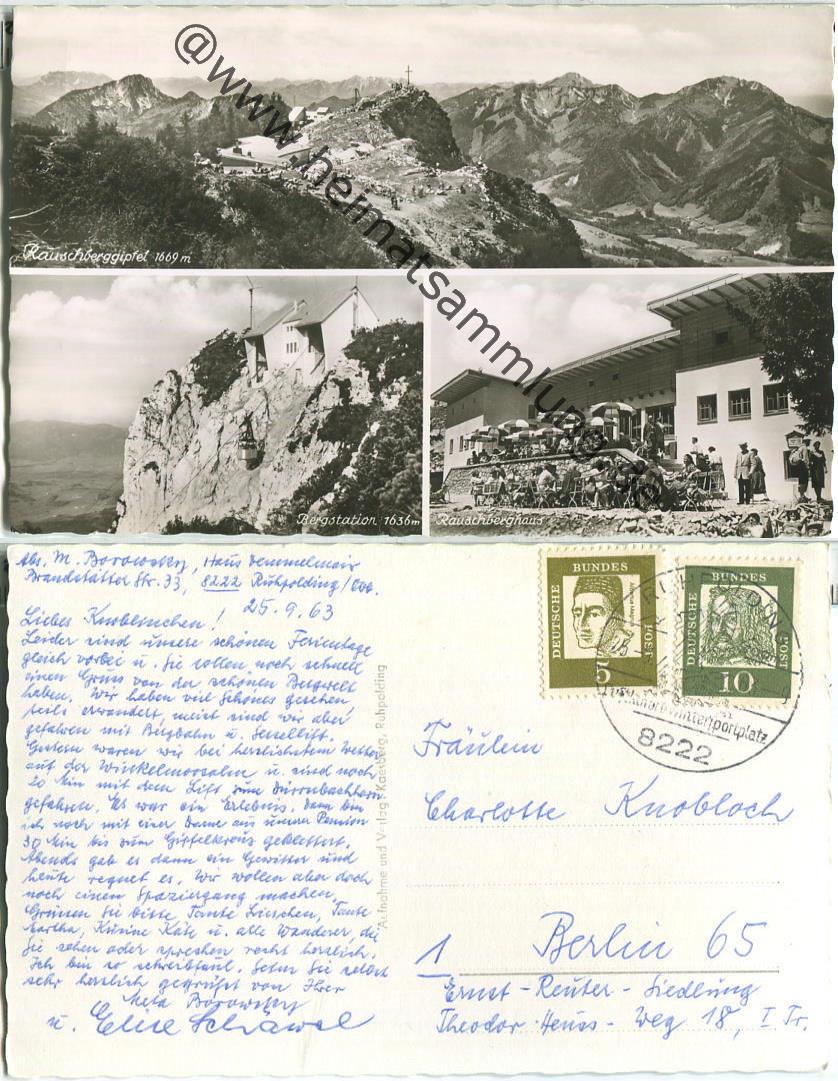 @www.heimatsammlung.de
Rauschberggipfel 1669 m
Bergstation 1636 m
Rauschberghaus
Abs. M. Borowsky, Haus Demmelmair
Brandstätter Str. 33, 8222 Ruhpolding/Obb.
25.9.63
Liebes Knoblinchen!
Leider sind unsere schönen Ferientage
gleich vorbei u. Sie sollen noch schnell
einen Gruss von der schönen Bergwelt
haben. Wir haben viel Schönes gesehen,
teils erwandert, meist sind wir aber
gefahren mit Bergbahn u. Sessellift.
Gestern waren wir bei herrlichstem Wetter
auf der Winkelmoosalm u. sind noch
20 Min mit dem Lift zum Dürrnbachhorn
gefahren. Es war ein Erlebnis. Dann bin
ich noch mit einer Dame aus unserer Pension
30 Min bis zum Gipfelkreuz geklettert.
Abends gab es dann ein Gewitter und
heute regnet es. Wir wollen aber doch
noch einen Spaziergang machen.
Grüssen Sie bitte Tante Lieschen, Tante
Martha, Kusine Käte u. alle Wanderer die
Sie sehen oder sprechen recht herzlich.
Ich bin so schreibfaul. Seien Sie selbst
sehr herzlich gegrüsst von Ihrer
Meta Borowsky
u. Elise Schäwel
Aufnahme und Verlag: Kaesberg, Ruhpolding
DEUTSCHE BUNDES POST
5
DEUTSCHE BUNDES POST
10
Wintersportplatz
8222
Fräulein
Charlotte Knobloch
1 Berlin 65
Ernst-Reuter-Siedlung
Theodor-Heuss-Weg 18, I Tr.